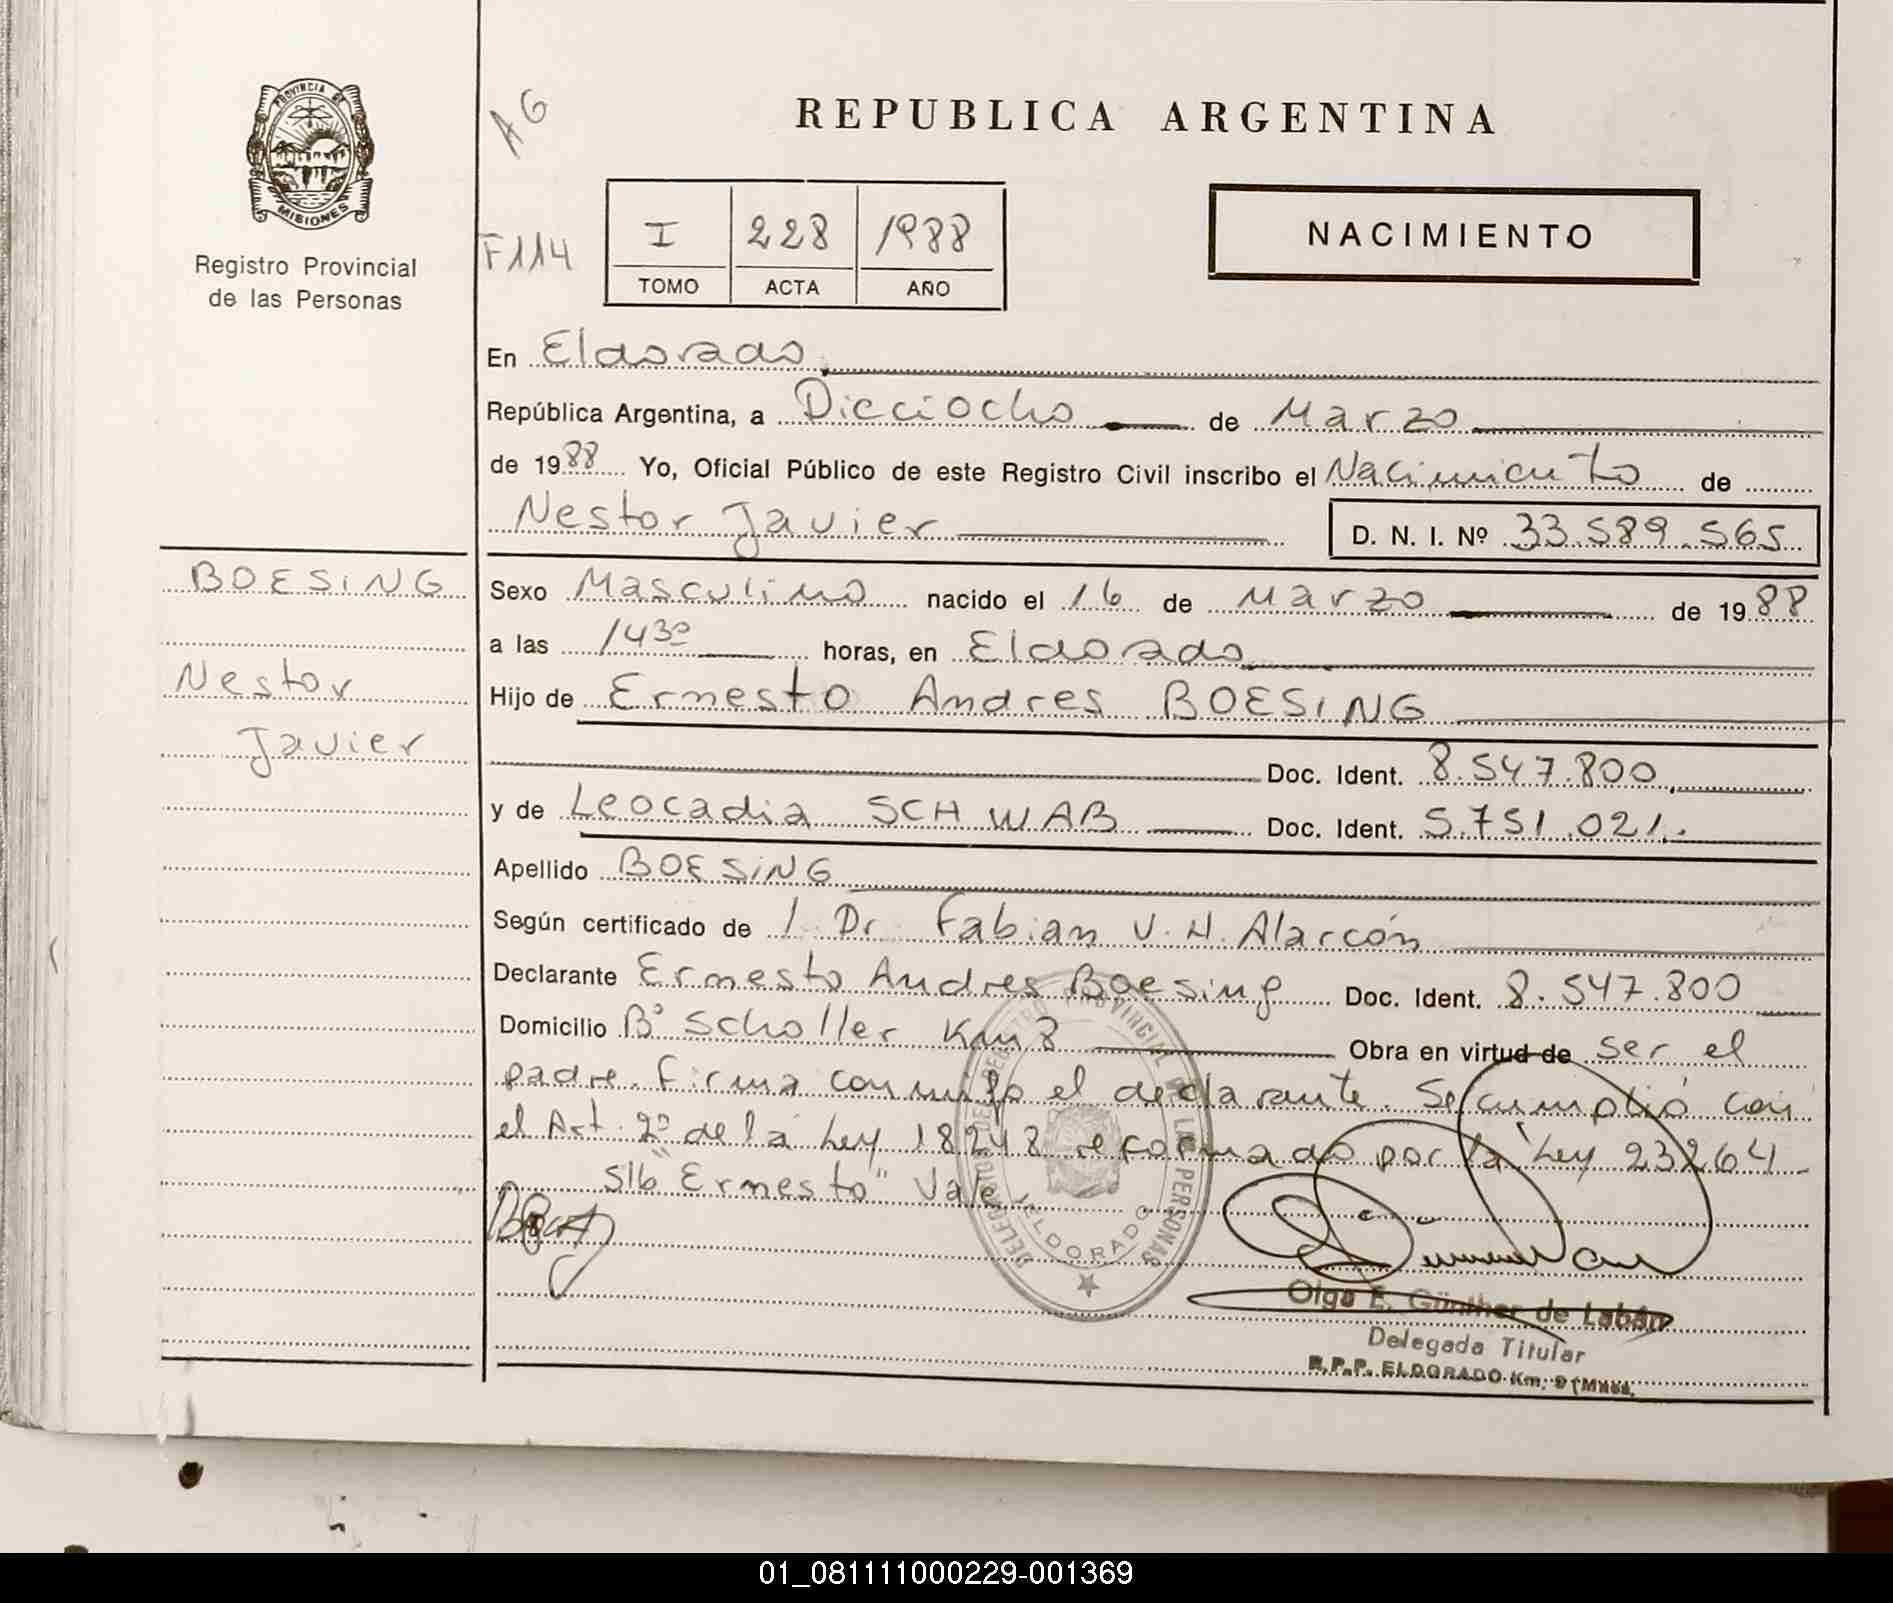 PROVINCIA DE
MISIONES
Registro Provincial
de las Personas
AG
F114
REPUBLICA ARGENTINA
I 228 1988
TOMO ACTA AÑO
NACIMIENTO
En Eldorado
República Argentina, a Dieciocho de Marzo
de 1988 Yo, Oficial Público de este Registro Civil inscribo el Nacimiento de
Nestor Javier D. N. I. Nº 33.589.565
BOESING
Nestor
Javier
Sexo Masculino nacido el 16 de Marzo de 1988
a las 1430 horas, en Eldorado
Hijo de Ernesto Andres BOESING
Doc. Ident. 8.547.800
y de Leocadia SCHWAB Doc. Ident. 5.751.021.
Apellido BOESING
Según certificado de l Dr. Fabian V. H. Alarcón
Declarante Ernesto Andres Boesing Doc. Ident. 8.547.800
Domicilio Bº Scholler Km 8 Obra en virtud de ser el
padre. Firma conmigo el declarante. Se cumplió con
el Art. 2º de la Ley 18248 reformado por la Ley 23264-
S/b "Ernesto" Vale
DELEGACION DE REGISTRO PROVINCIAL DE LAS PERSONAS
ELDORADO
Olga E. Günther de Labán
Delegada Titular
R.P.P. ELDORADO Km. 9 (Mnes.
01_081111000229-001369